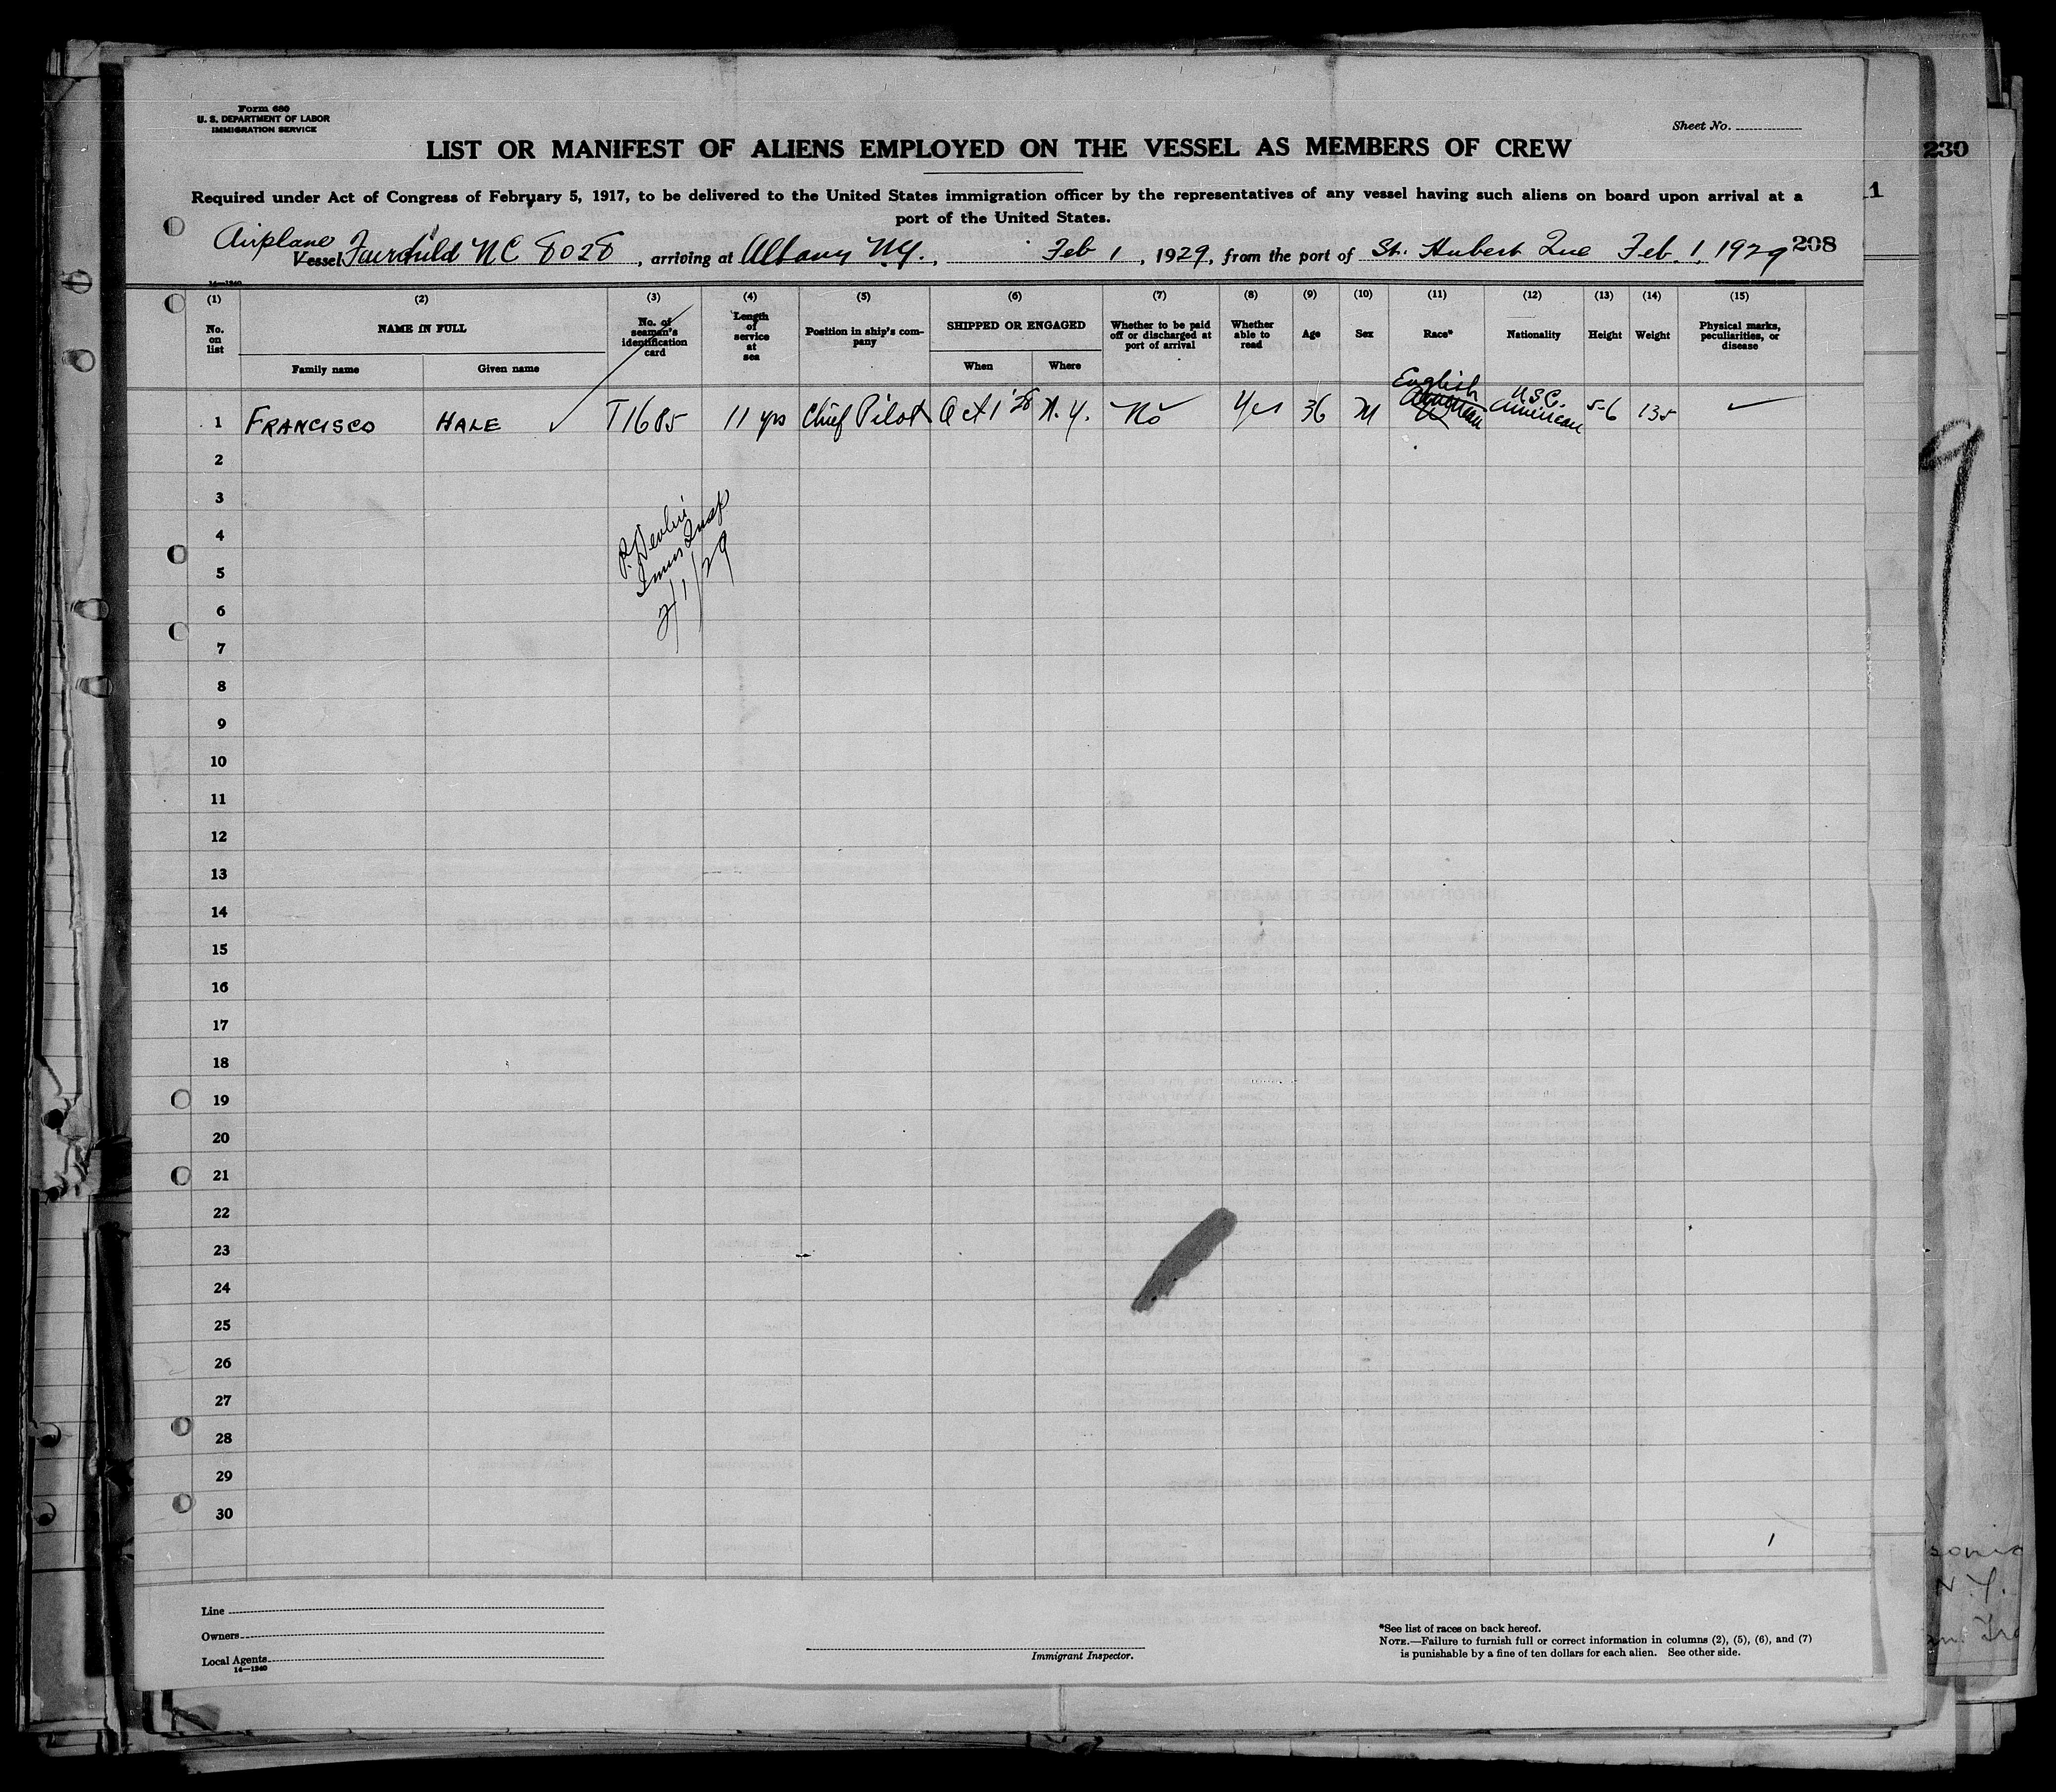 Form 680
U. S. DEPARTMENT OF LABOR
IMMIGRATION SERVICE
Sheet No.
LIST OR MANIFEST OF ALIENS EMPLOYED ON THE VESSEL AS MEMBERS OF CREW
230
1
Required under Act of Congress of February 5, 1917, to be delivered to the United States immigration officer by the representatives of any vessel having such aliens on board upon arrival at a
port of the United States.
Airplane
Vessel Fairchild NC 8028, arriving at Albany N.Y., Feb 1, 1929, from the port of St. Hubert Que Feb. 1, 1929 208
14—1240
(1) (2) (3) (4) (5) (6) (7) (8) (9) (10) (11) (12) (13) (14) (15)
No. on list
NAME IN FULL
Family name
Given name
No. of seaman's identification card
Length of service at sea
Position in ship's company
SHIPPED OR ENGAGED
When
Where
Whether to be paid off or discharged at port of arrival
Whether able to read
Age
Sex
Race*
Nationality
Height
Weight
Physical marks, peculiarities, or disease
English U.S.C.
1 FRANCISCO HALE ✓ T1685 11 yrs Chief Pilot Oct 1 '28 N.Y. No Yes 36 M American American 5-6 135 ✓
2
3
4
P. Devlin
Imm Insp
2/1/29
5
6
7
8
9
10
11
12
13
14
15
16
17
18
19
20
21
22
23
24
25
26
27
28
29
30
1
9
N.Y.
Line
Owners
Local Agents
14—1240
Immigrant Inspector.
*See list of races on back hereof.
NOTE.—Failure to furnish full or correct information in columns (2), (5), (6), and (7)
is punishable by a fine of ten dollars for each alien. See other side.